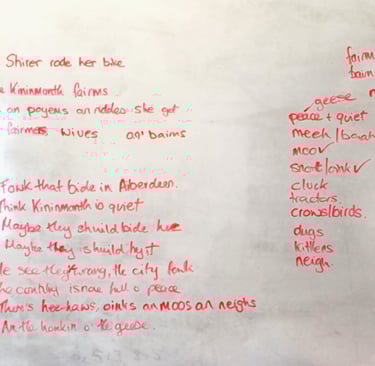 Shirer rode her bike
Kininmonth fairms
an an she got
fairmers, wives an' bairns
Fowk that bide in Aberdeen.
Think Kininmonth is quiet
Maybe they shuild bide here
Maybe they shuild try it
see they're wrang, the city fowk
The country is nae full o peace
There's hee-haws, oinks an moos an neighs
An the honkin o' the geese.
fairm
bairn
geese
peace + quiet
meeh / baah
moo ✓
snort/oink ✓
cluck
tractors
crows/birds.
dugs
kittens
neigh.